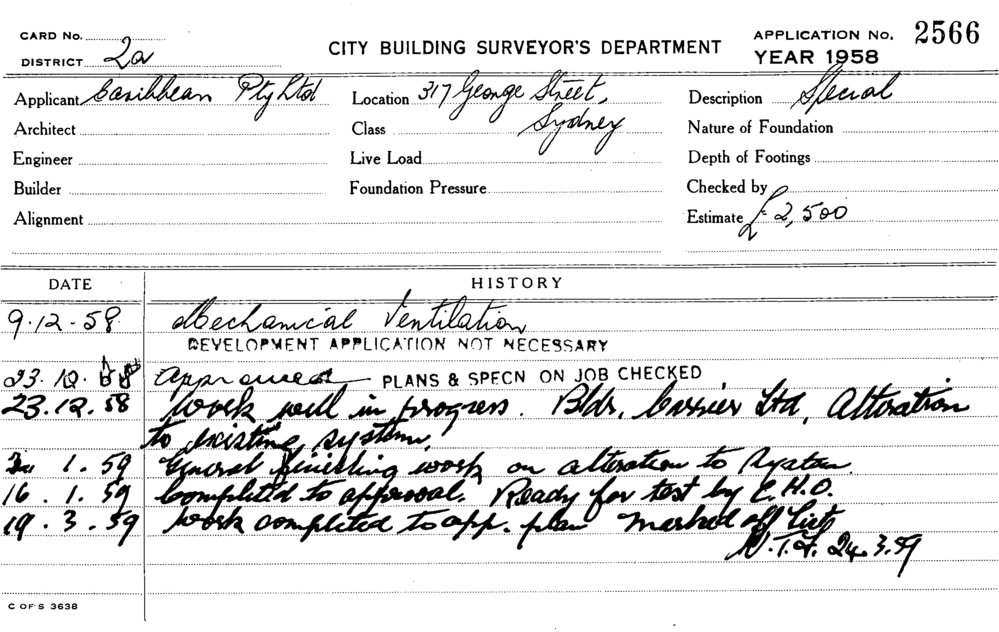 CARD No.
DISTRICT 2a
CITY BUILDING SURVEYOR'S DEPARTMENT
APPLICATION No. 2566
YEAR 1958
Applicant Caribbean Pty Ltd
Location 317 George Street,
Sydney
Description Special
Architect
Class
Nature of Foundation
Engineer
Live Load
Depth of Footings
Builder
Foundation Pressure
Checked by
Alignment
Estimate £2,500
DATE HISTORY
9.12.58 Mechanical Ventilation
DEVELOPMENT APPLICATION NOT NECESSARY
23.12.58 Approved PLANS & SPECN ON JOB CHECKED
23.12.58 Work well in progress. Bldr. Carrier Ltd, Alteration
to existing system.
1.59 General finishing work on alteration to system.
16.1.59 Completed to approval. Ready for test by C.H.O.
19.3.59 Work completed to app. plan marked off list
24.3.59
C OF S 3638